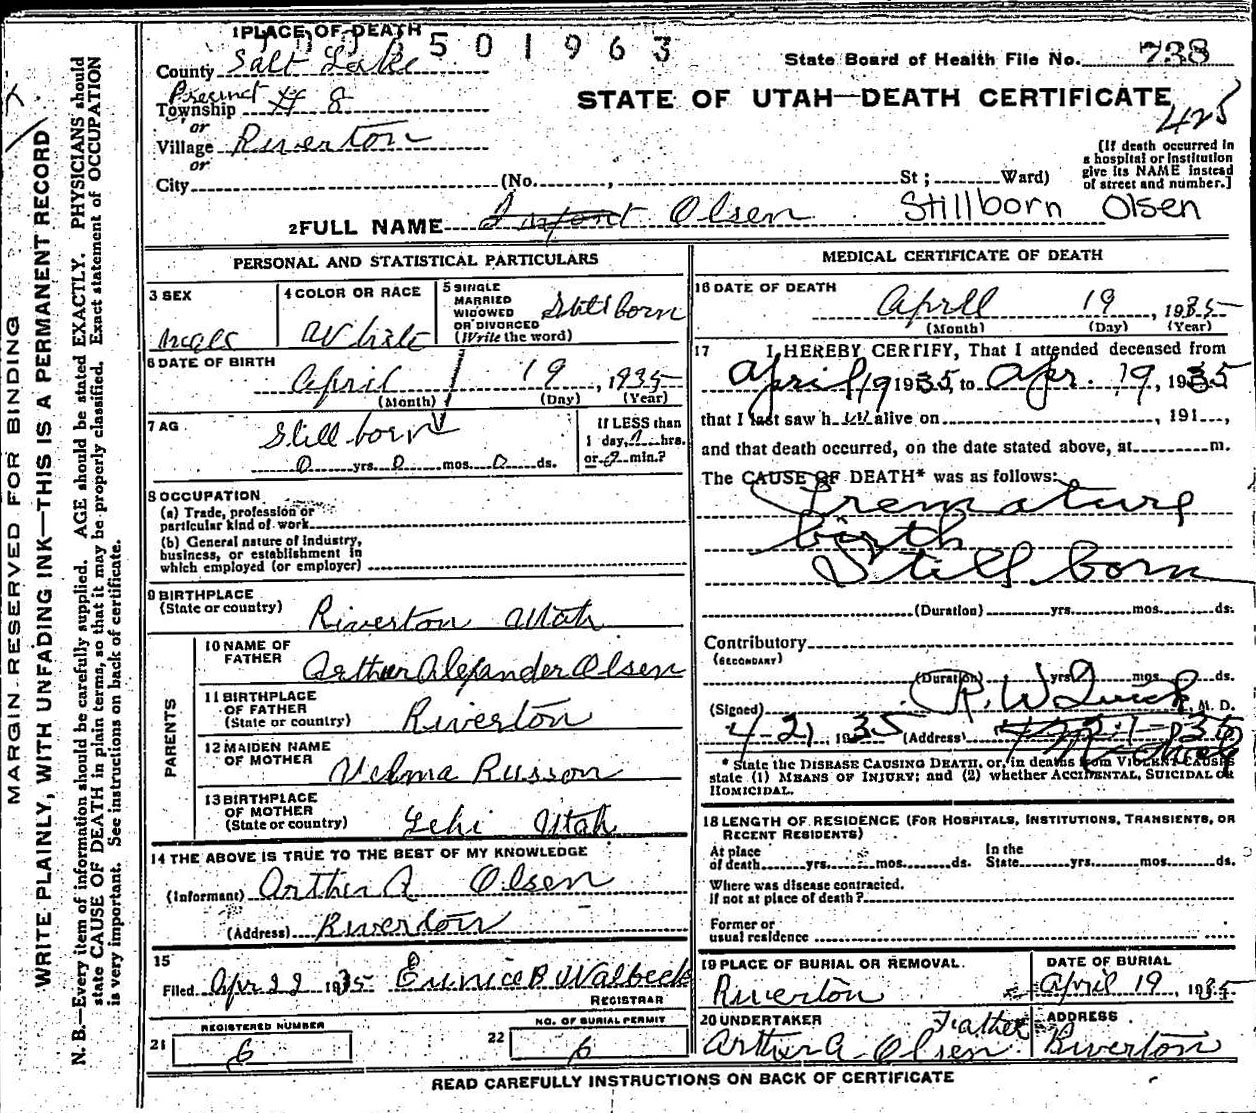 1 PLACE OF DEATH
501963
County Salt Lake
State Board of Health File No. 738
Precinct
Township # 8
STATE OF UTAH—DEATH CERTIFICATE
425
or
Village Riverton
or
City (No. , St ; Ward)
[If death occurred in a hospital or institution give its NAME instead of street and number.]
2 FULL NAME Infant Olsen Stillborn Olsen
PERSONAL AND STATISTICAL PARTICULARS
3 SEX
Male
4 COLOR OR RACE
White
5 SINGLE
MARRIED
WIDOWED
OR DIVORCED
(Write the word)
Stillborn
6 DATE OF BIRTH
April 19, 1935
(Month) (Day) (Year)
7 AG
Stillborn
0 yrs. 0 mos. 0 ds.
If LESS than
1 day, hrs.
or min.?
8 OCCUPATION
(a) Trade, profession or
particular kind of work
(b) General nature of industry,
business, or establishment in
which employed (or employer)
9 BIRTHPLACE
(State or country)
Riverton Utah
PARENTS
10 NAME OF
FATHER
Arthur Alexander Olsen
11 BIRTHPLACE
OF FATHER
(State or country)
Riverton
12 MAIDEN NAME
OF MOTHER
Velma Russon
13 BIRTHPLACE
OF MOTHER
(State or country)
Lehi Utah
14 THE ABOVE IS TRUE TO THE BEST OF MY KNOWLEDGE
(Informant) Arthur A Olsen
(Address) Riverton
15
Filed Apr 22 1935 Eunice B Walbeck
REGISTRAR
REGISTERED NUMBER
21 6
NO. OF BURIAL PERMIT
22 6
MEDICAL CERTIFICATE OF DEATH
16 DATE OF DEATH
April 19, 1935
(Month) (Day) (Year)
17 I HEREBY CERTIFY, That I attended deceased from
April 19 1935, to Apr. 19, 1935
that I last saw h alive on , 191 ,
and that death occurred, on the date stated above, at m.
The CAUSE OF DEATH* was as follows:
Premature
birth
Still born
(Duration) yrs. mos. ds.
Contributory
(SECONDARY)
(Duration) yrs. mos. ds.
(Signed) R. W. Quick, M. D.
4-21, 1935 (Address) 4-21-35
* State the DISEASE CAUSING DEATH, or, in deaths from VIOLENT CAUSES
state (1) MEANS OF INJURY; and (2) whether ACCIDENTAL, SUICIDAL or
HOMICIDAL.
18 LENGTH OF RESIDENCE (FOR HOSPITALS, INSTITUTIONS, TRANSIENTS, OR
RECENT RESIDENTS)
At place
of death yrs. mos. ds.
In the
State yrs. mos. ds.
Where was disease contracted,
if not at place of death?
Former or
usual residence
19 PLACE OF BURIAL OR REMOVAL.
Riverton
DATE OF BURIAL
April 19, 1935
20 UNDERTAKER
Father
Arthur A Olsen
ADDRESS
Riverton
READ CAREFULLY INSTRUCTIONS ON BACK OF CERTIFICATE
MARGIN RESERVED FOR BINDING
WRITE PLAINLY, WITH UNFADING INK—THIS IS A PERMANENT RECORD
N. B.—Every item of information should be carefully supplied. AGE should be stated EXACTLY. PHYSICIANS should
state CAUSE OF DEATH in plain terms, so that it may be properly classified. Exact statement of OCCUPATION
is very important. See instructions on back of certificate.